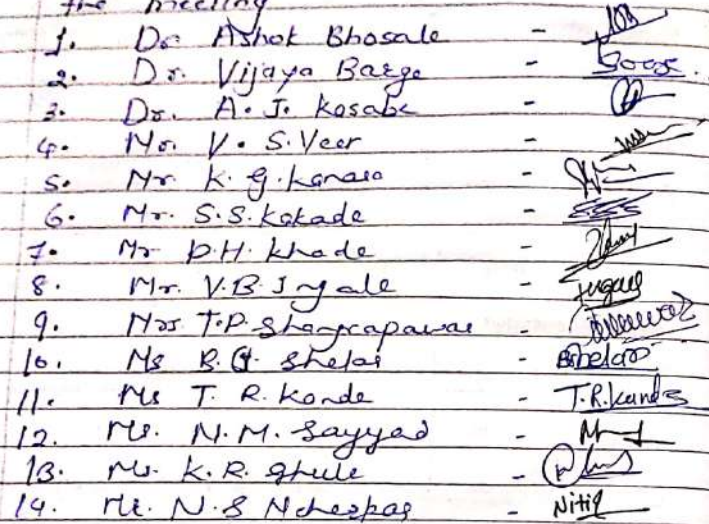 the meeting
1. Dr. Ashok Bhosale -
2. Dr. Vijaya Barge -
3. Dr. A. J. Kosabe -
4. Mr. V. S. Veer -
5. Mr. K. G. -
6. Mr. S. S. Kakade -
7. Mr D.H. Khade -
8. Mr. V.B. Ingale -
9. Mrs T.P. -
10. Ms B. G. Shelar - BShelar
11. Ms T. R. Konde - T.R.Kunde
12. Ms. N. M. Sayyad -
13. Ms. K. R. Ghule -
14. Mr. N. S - Nitin